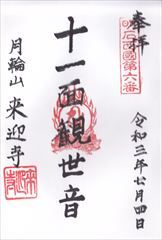 奉拝
明石西國第六番
令和三年七月四日
十一面観世音
月輪山 来迎寺